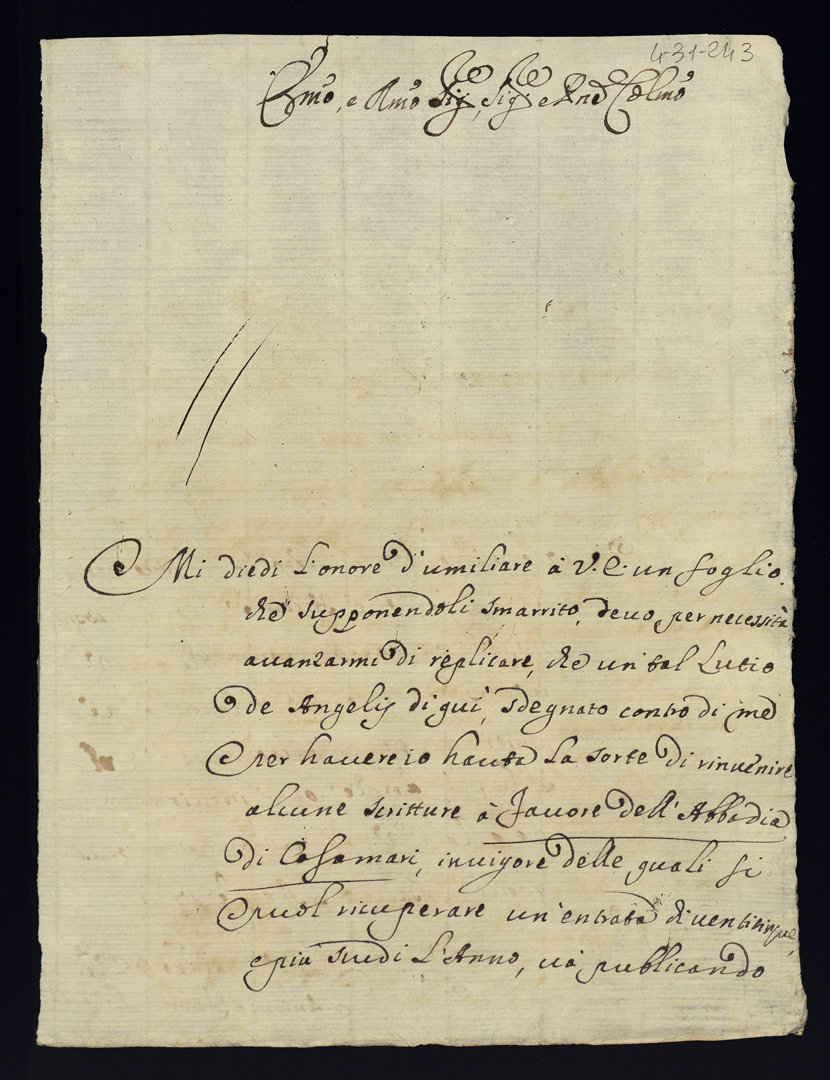 4-31-243
Emo, e Rmo Sig.re, Sig.re e Pne Colmo
Mi diedi L'onore d'umiliare à V. E. un foglio.
che supponendoli smarrito, devo, per necessità
avanzarmi di replicare, che un tal Lutio
De Angelis di qui, sdegnato contro di me
per havere io hauta La sorte di rinvenire
alcune scritture à favore dell'Abbadia
di Casamari, in vigore delle quali si
puol ricuperare un'entrata di venticinque,
e più scudi L'Anno, và publicando